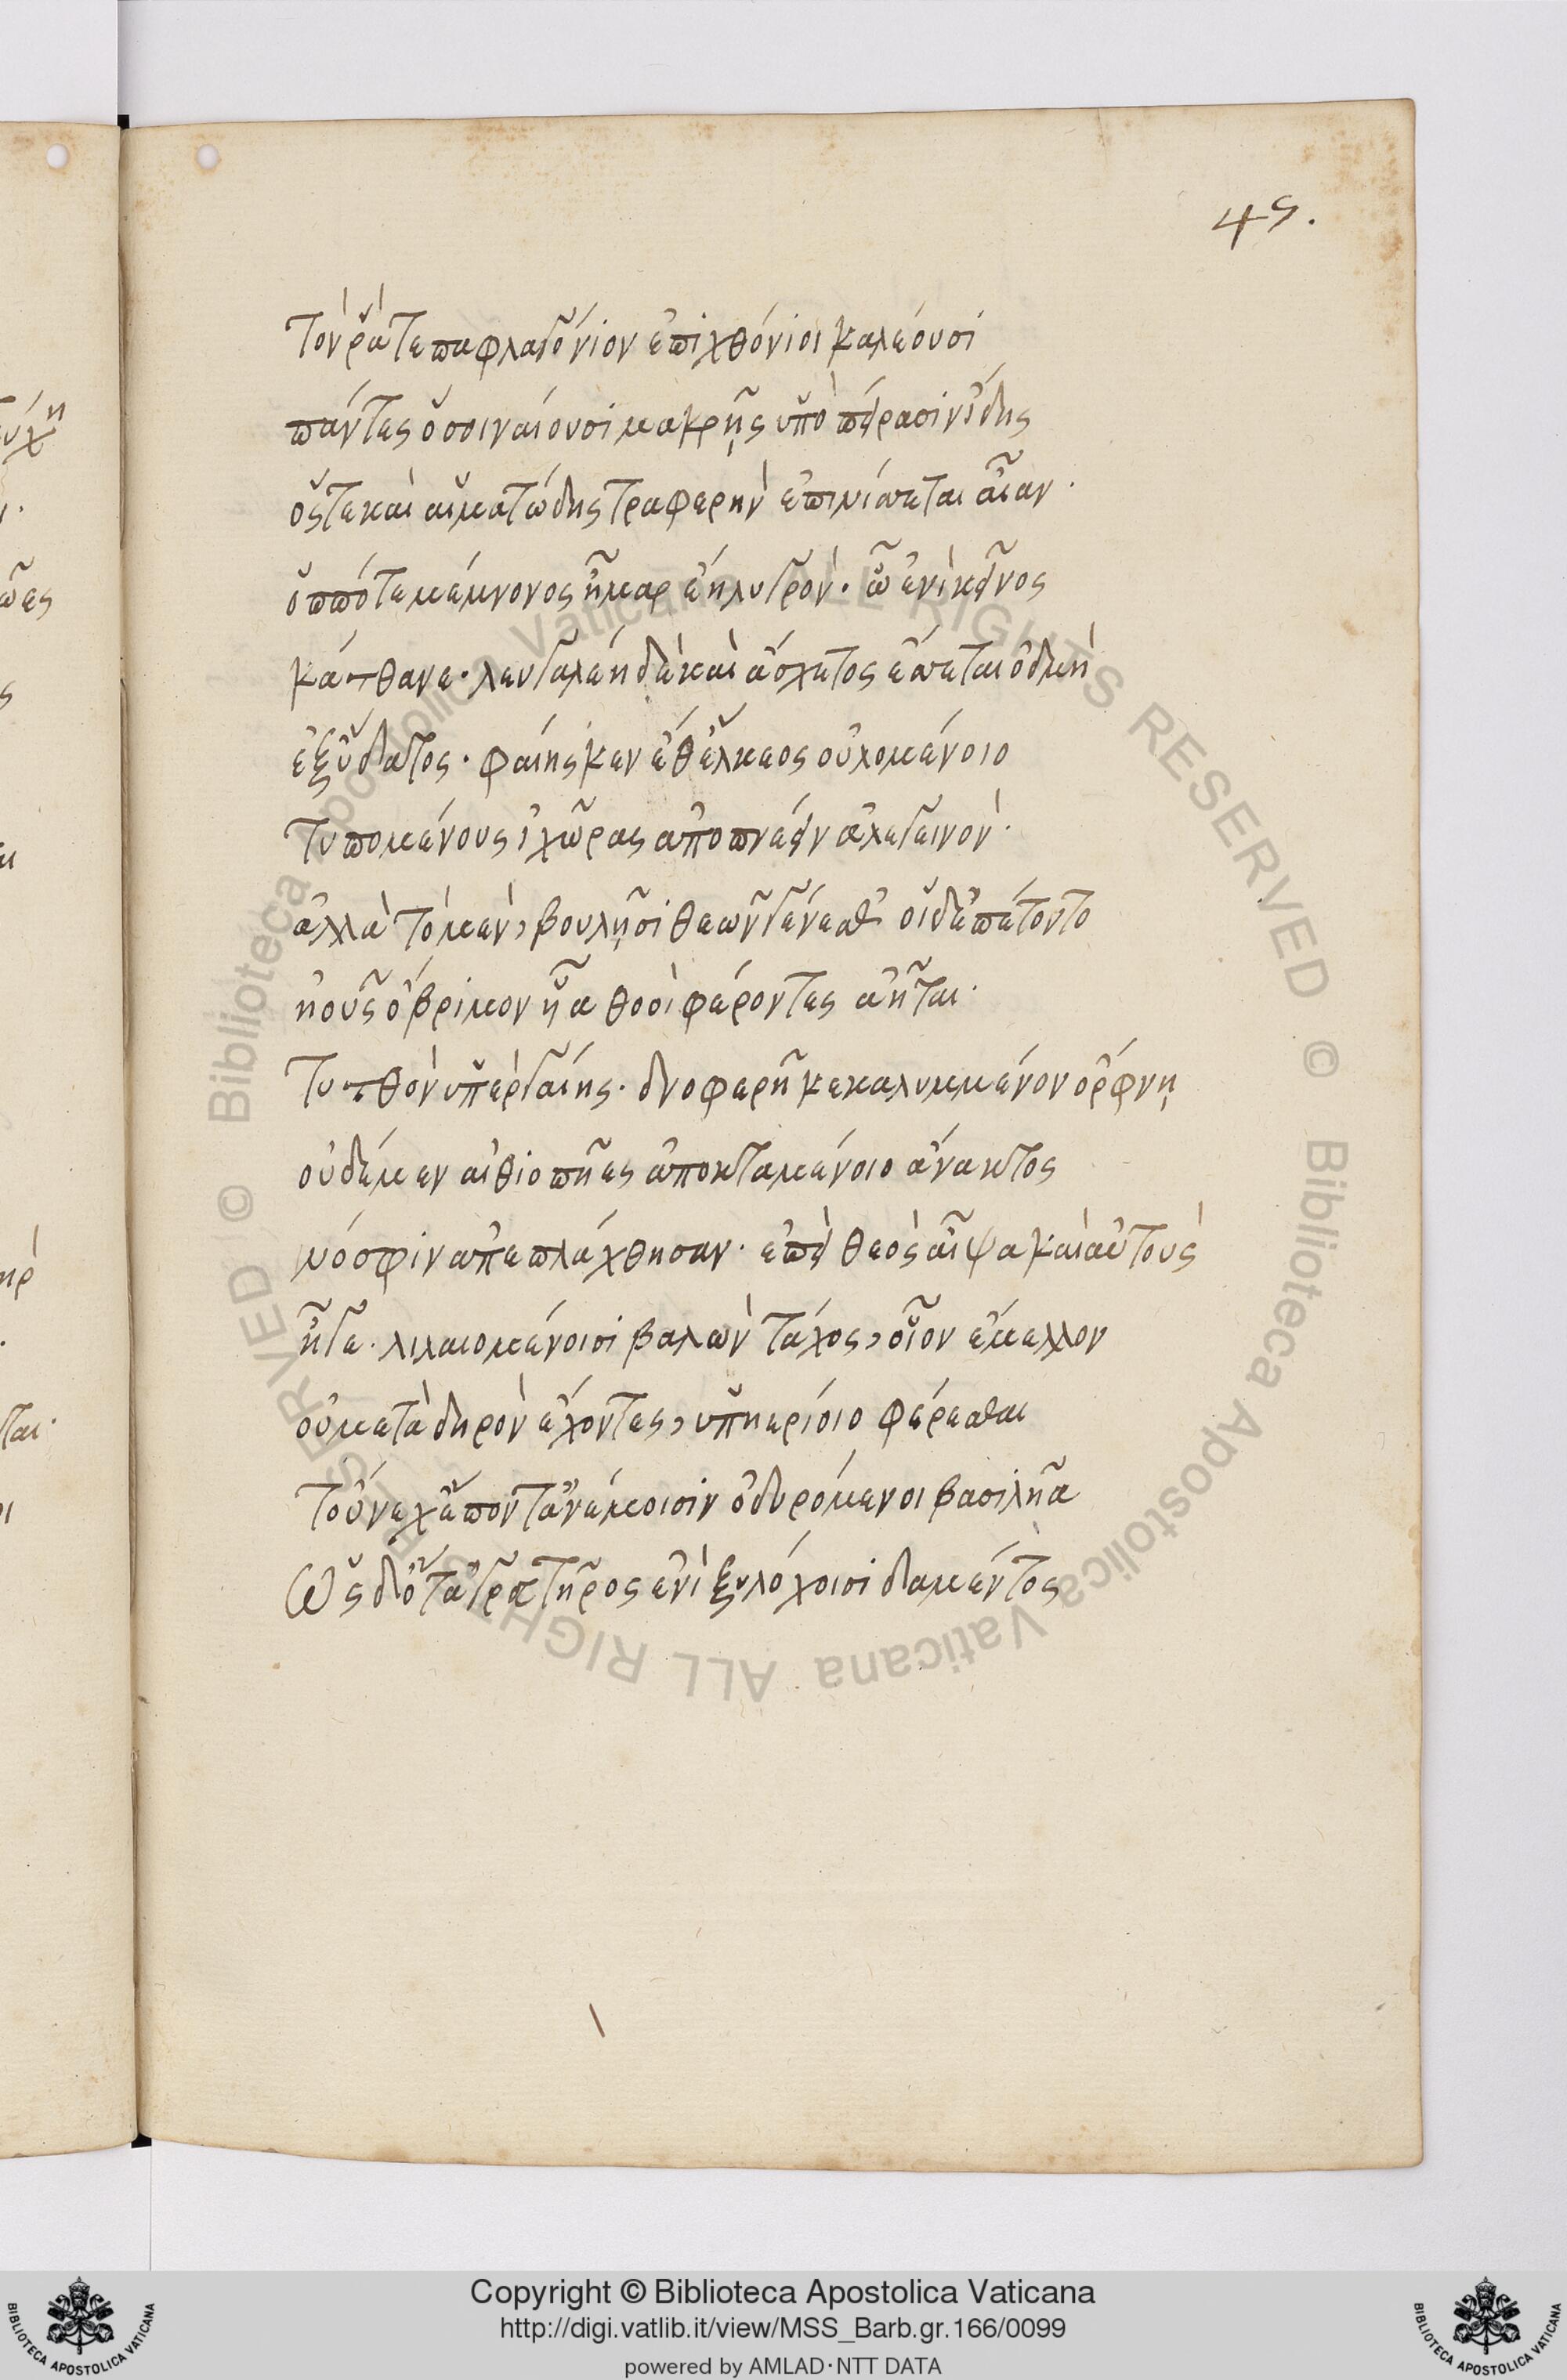 45.
τόν ῥά τε παφλαγόνιον ἐπιχθόνιοι καλέουσι
πάντες ὅσοι ναίουσι μακρῇς ὑπὸ πείρασιν ἴδης
ὅς τε καὶ αἱματώδης τραφερὴν ἐπινίσεται αἶαν·
ὁππότε μέμνονος ἦμαρ ἔῃ λυγρόν· ᾧ ἐνὶ κεῖνος
κάτθανε· λευγαλέη δὲ καὶ ἄσχετος ἕσεται ὀδμὴ
ἐξ ὕδατος· φαίης κεν ἔθ' ἕλκεος οὐλομένοιο
τυπομένους ἰχῶρας ἀποπνείειν ἀλεγεινόν·
ἀλλὰ τὸ μὲν, βουλῇσι θεῶν γένεσθ' οἱ δ' ἐπέτοντο
ἠοῦς ὄβριμον υἷα θοοὶ φέροντες ἀῆται·
τυτθὸν ὑπὲρ γαίης· δνοφερῇ κεκαλυμμένον ὄρφνῃ
οὐδὲ μὲν αἰθιοπῆες ἀποκταμένοιο ἄνακτος
νόσφιν ἀπεπλάχθησαν· ἐπεὶ θεὸς αἶψα καὶ αὐτοὺς
ἦγε· λιλαιομένοισι βαλὼν τάχος, οἷον ἔμελλον
οὐ μετὰ δηρὸν ἔχοντες, ὑπηερίοιο φέρεσθαι
τοὔνεχ' ἕποντ' ἀνέμοισιν ὀδυρόμενοι βασιλῆα
Ὡς δ' ὅτ' ἀγρατῆρος ἐνὶ ξυλόχοισι δαμέντος
Copyright © Biblioteca Apostolica Vaticana
http://digi.vatlib.it/view/MSS_Barb.gr.166/0099
powered by AMLAD·NTT DATA